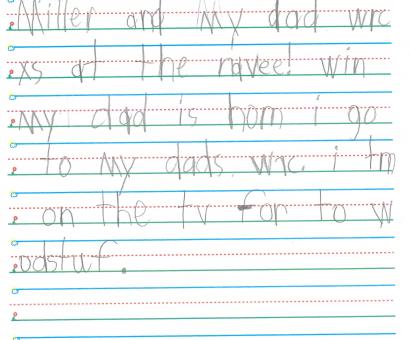 Miller and My dad wrc
xs at the ravee! win
my dad is hom i go
to My dads. wrc. i tm
on the tv for to w
odstuf.